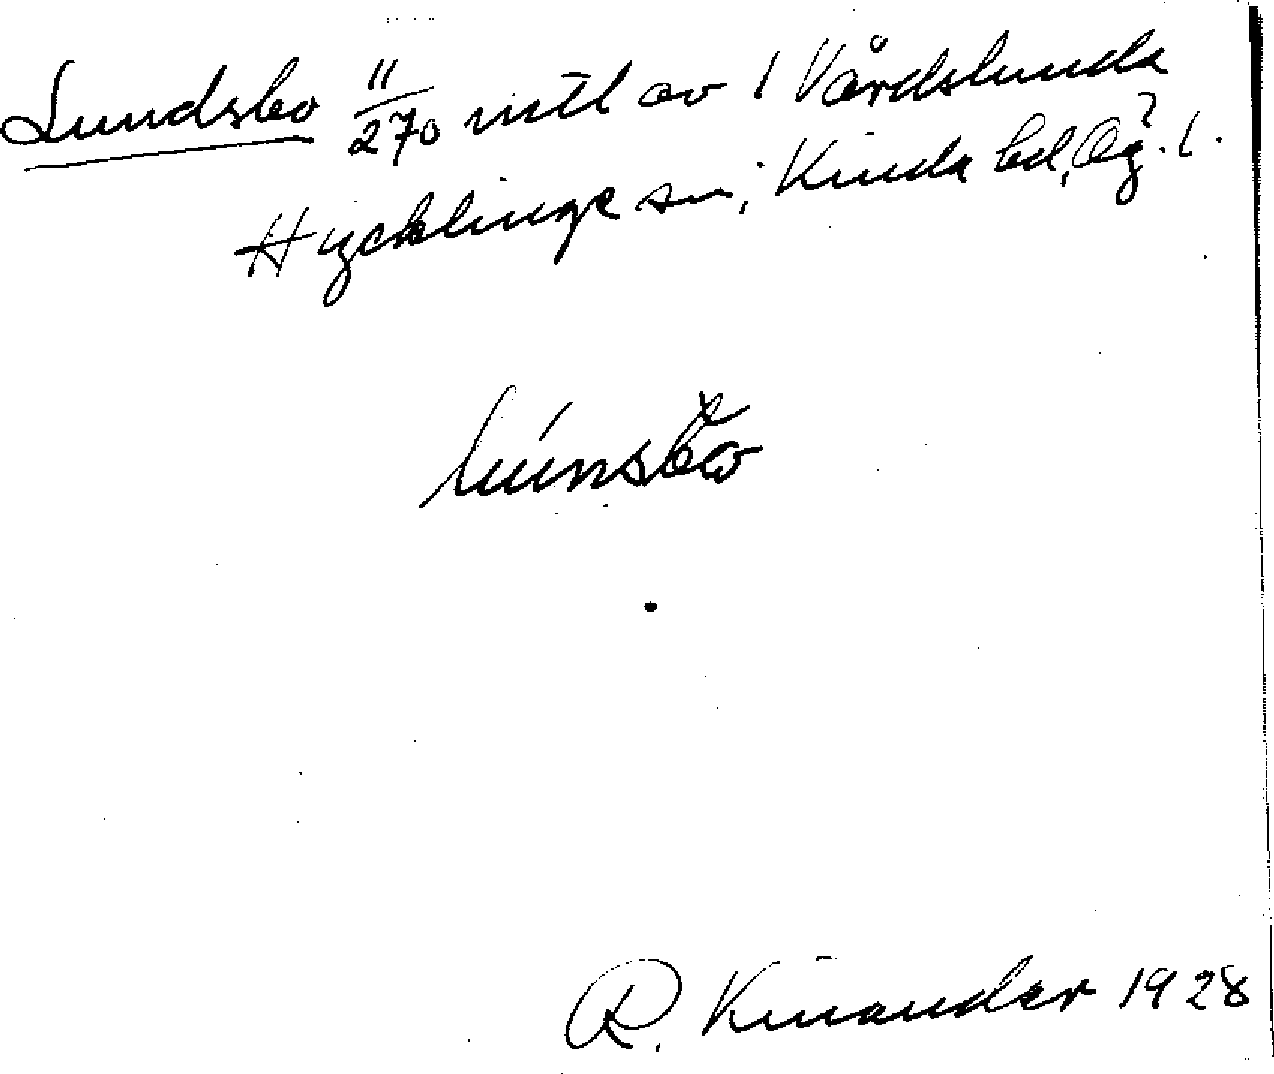 Lundsbo 11/270 mtl av 1 Vårdslunda
Hycklinge sn, Kinda hd, Ög. l.
lúnsbo
R. Kinander 1928